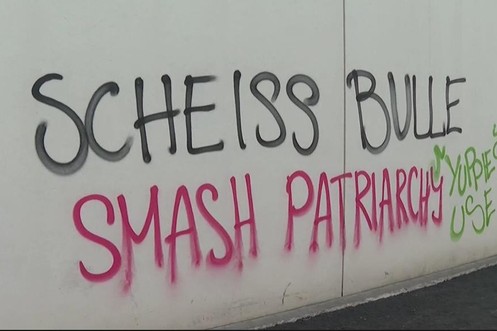 SCHEISS BULLE
SMASH PATRIARCHY
YUPPIES
USE